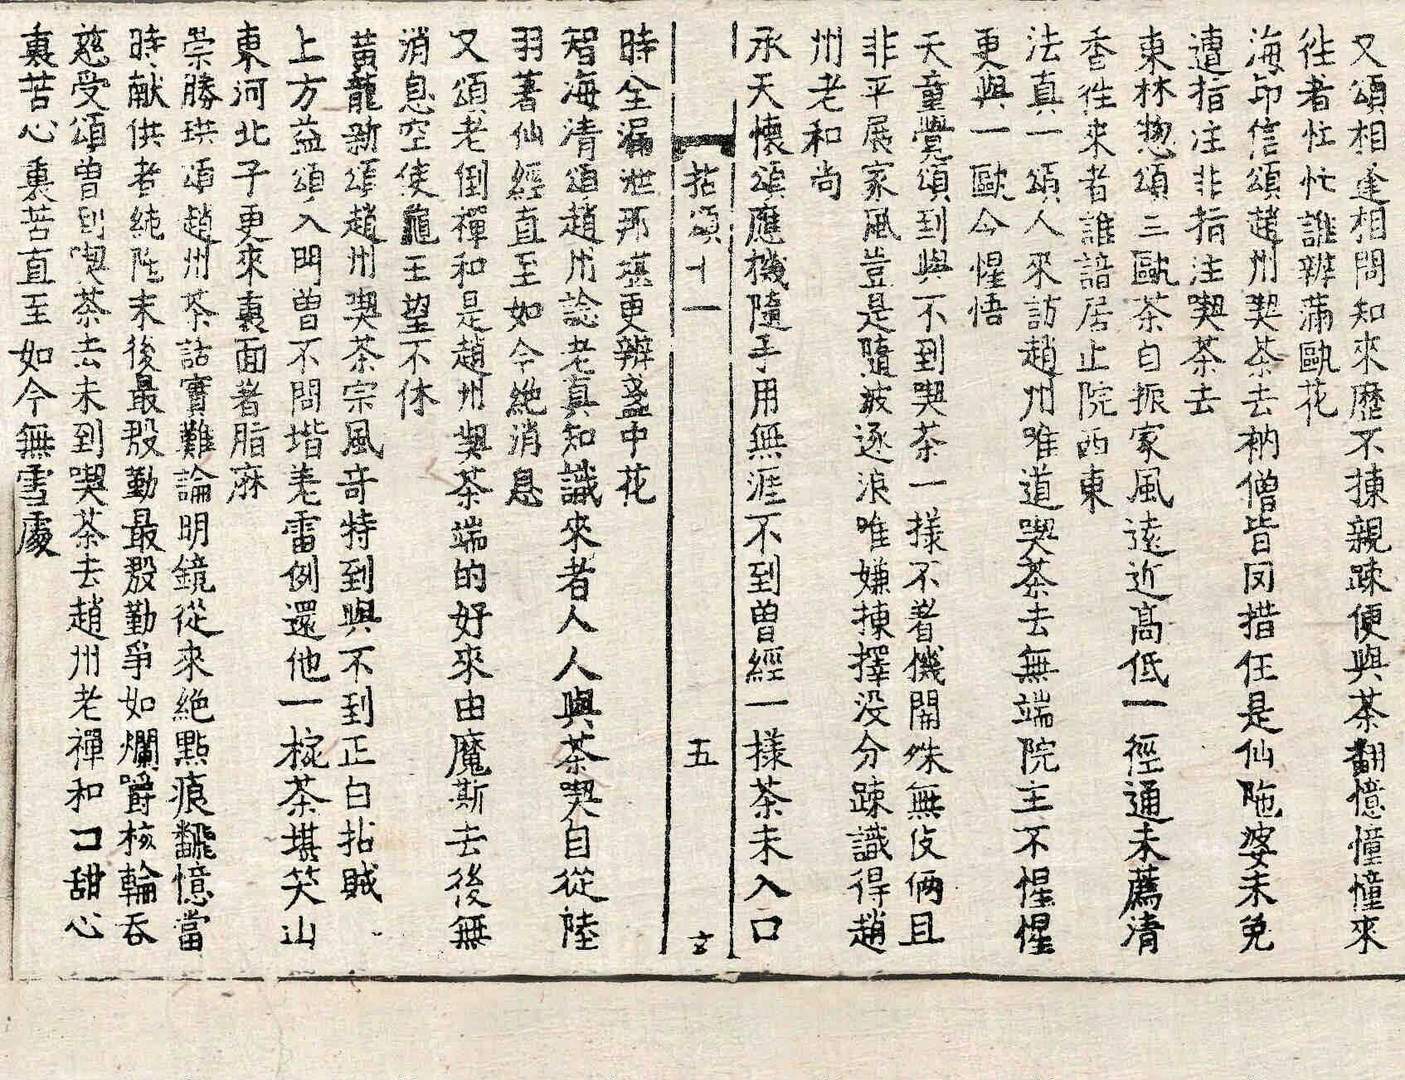 又頌相逢相問知來歷不揀親踈便與茶翻憶憧憧來
徃者忙忙誰辨滿甌花
海印信頌趙州喫茶去衲僧皆罔措任是仙陁婆未免
遭指注非指注喫茶去
東林惣頌三甌茶自振家風遠近高低一徑通未薦清
香徃來者誰諳居止院西東
法真一頌人來訪趙州唯道喫茶去無端院主不惺惺
更與一甌今惺悟
天童覺頌到與不到喫茶一樣不著機關殊無伎倆且
非平展家風豈是隨波逐浪唯嫌揀擇没分踈識得趙
州老和尚
承天懷頌應機隨手用無涯不到曾經一樣茶未入口
拈頌十一 五 玄
時全漏泄那堪更辨盞中花
智海清頌趙州諗老真知識來者人人與茶喫自從陸
羽著仙經直至如今絶消息
又頌老倒禪和是趙州喫茶端的好來由魔斯去後無
消息空使龍王望不休
黃龍新頌趙州喫茶宗風奇特到與不到正白拈賊
上方益頌入門曾不問堦差雷例還他一椀茶堪笑山
東河北子更來裏面著脂麻
崇勝珙頌趙州茶話實難論明鏡從來絶點痕翻憶當
時献供者純陁末後最殷勤最殷勤爭如爛嚼核輪吞
慈受頌曾到喫茶去未到喫茶去趙州老禪和口甜心
裏苦心裏苦直至如今無雪處